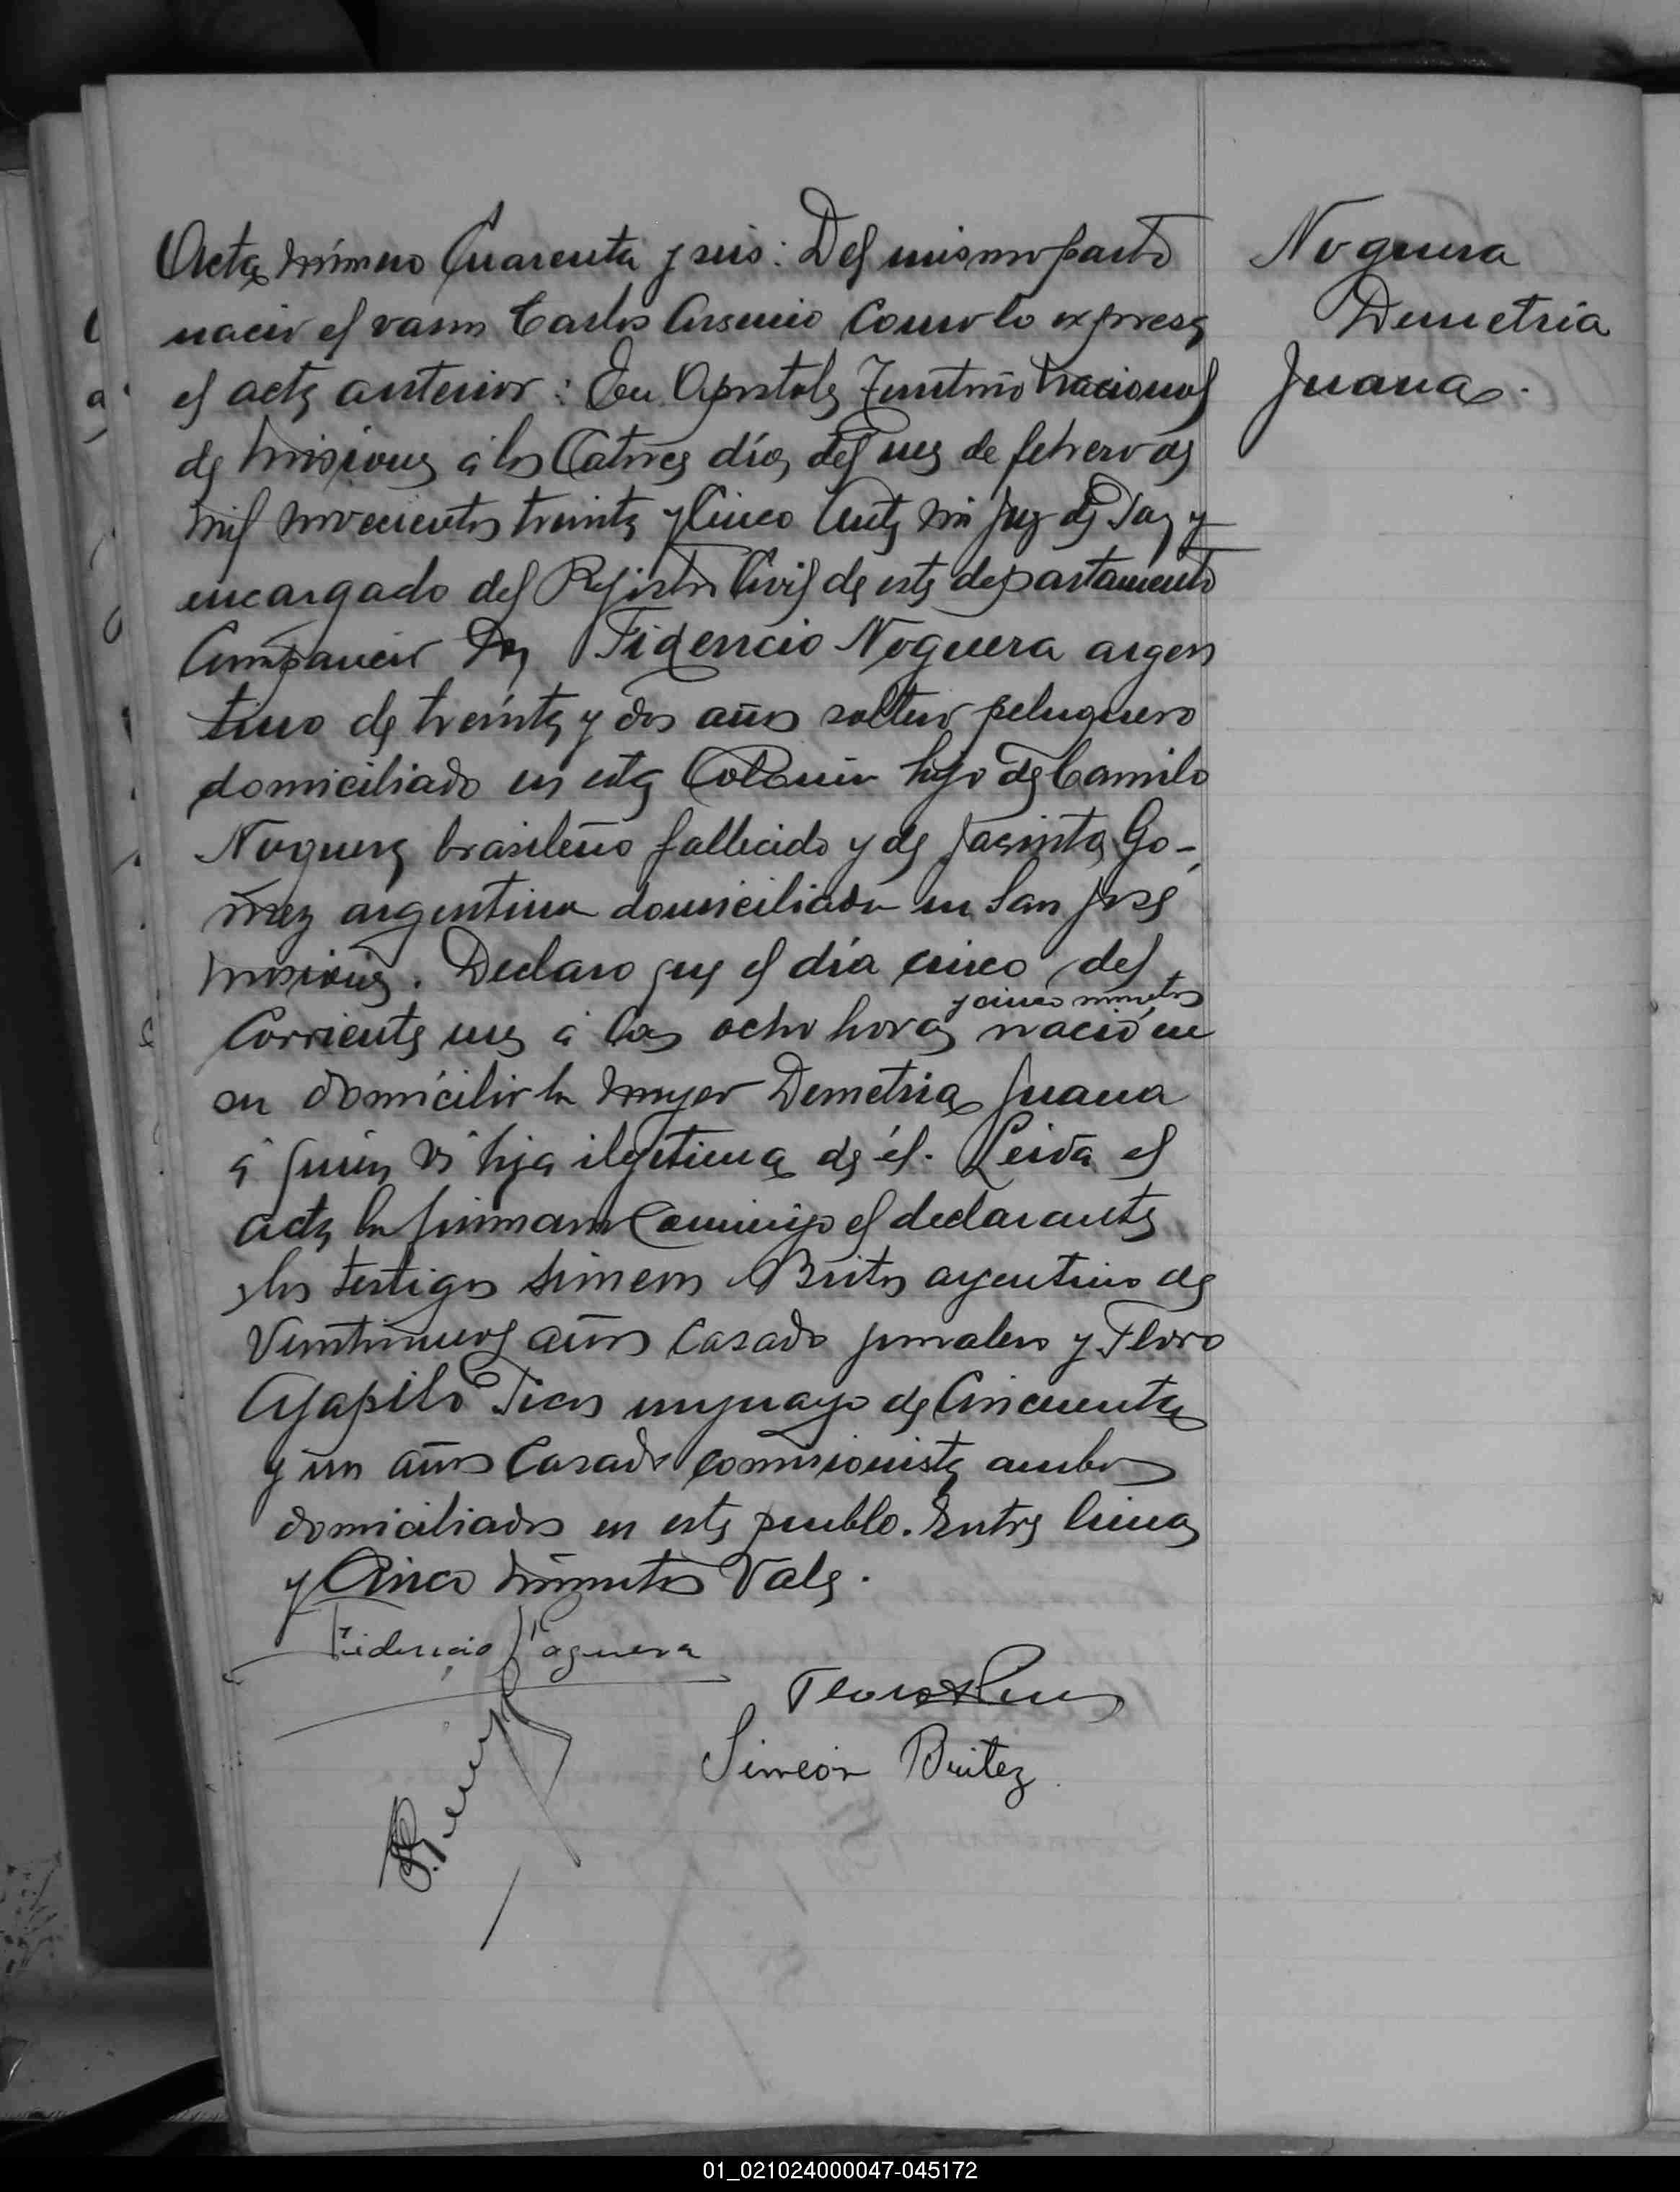 Acta número Cuarenta y seis: Del mismo parto
nació el varon Carlos Arsenio como lo expresa
el acta anterior: En Apostoles Territorio Nacional
de Misiones á los Catorce días del mes de febrero de
mil novecientos treinta y Cinco Ante mi Juez de Paz y
encargado del Rejistro Civil de este departamento
Compareció Don Fidencio Noguera argen
tino de treinta y dos años soltero peluquero
domiciliado en esta Colonia hijo de Camilo
Noguera brasileño fallecido y de Jacinta Go-
mez argentina domiciliada en San José
Misiones. Declaro que el día cinco del
y cinco minutos
Corriente mes á las ocho horas nació en
su domicilio la mujer Demetria Juana
á quien vi hija ilegitima de él. Leida el
acta la firmaron Conmigo el declarante
y los testigos Simeon Brites argentino de
Veintinueve años Casado jornalero y Floro
Agapito uruguayo de Cincuenta
y un años Casado comisionista ambos
domiciliados en este pueblo. Entre lineas
y Cinco minutos Vale.
Fidencio Noguera
Floro
Simeón Britez
Noguera
Demetria
Juana.
01_021024000047-045172